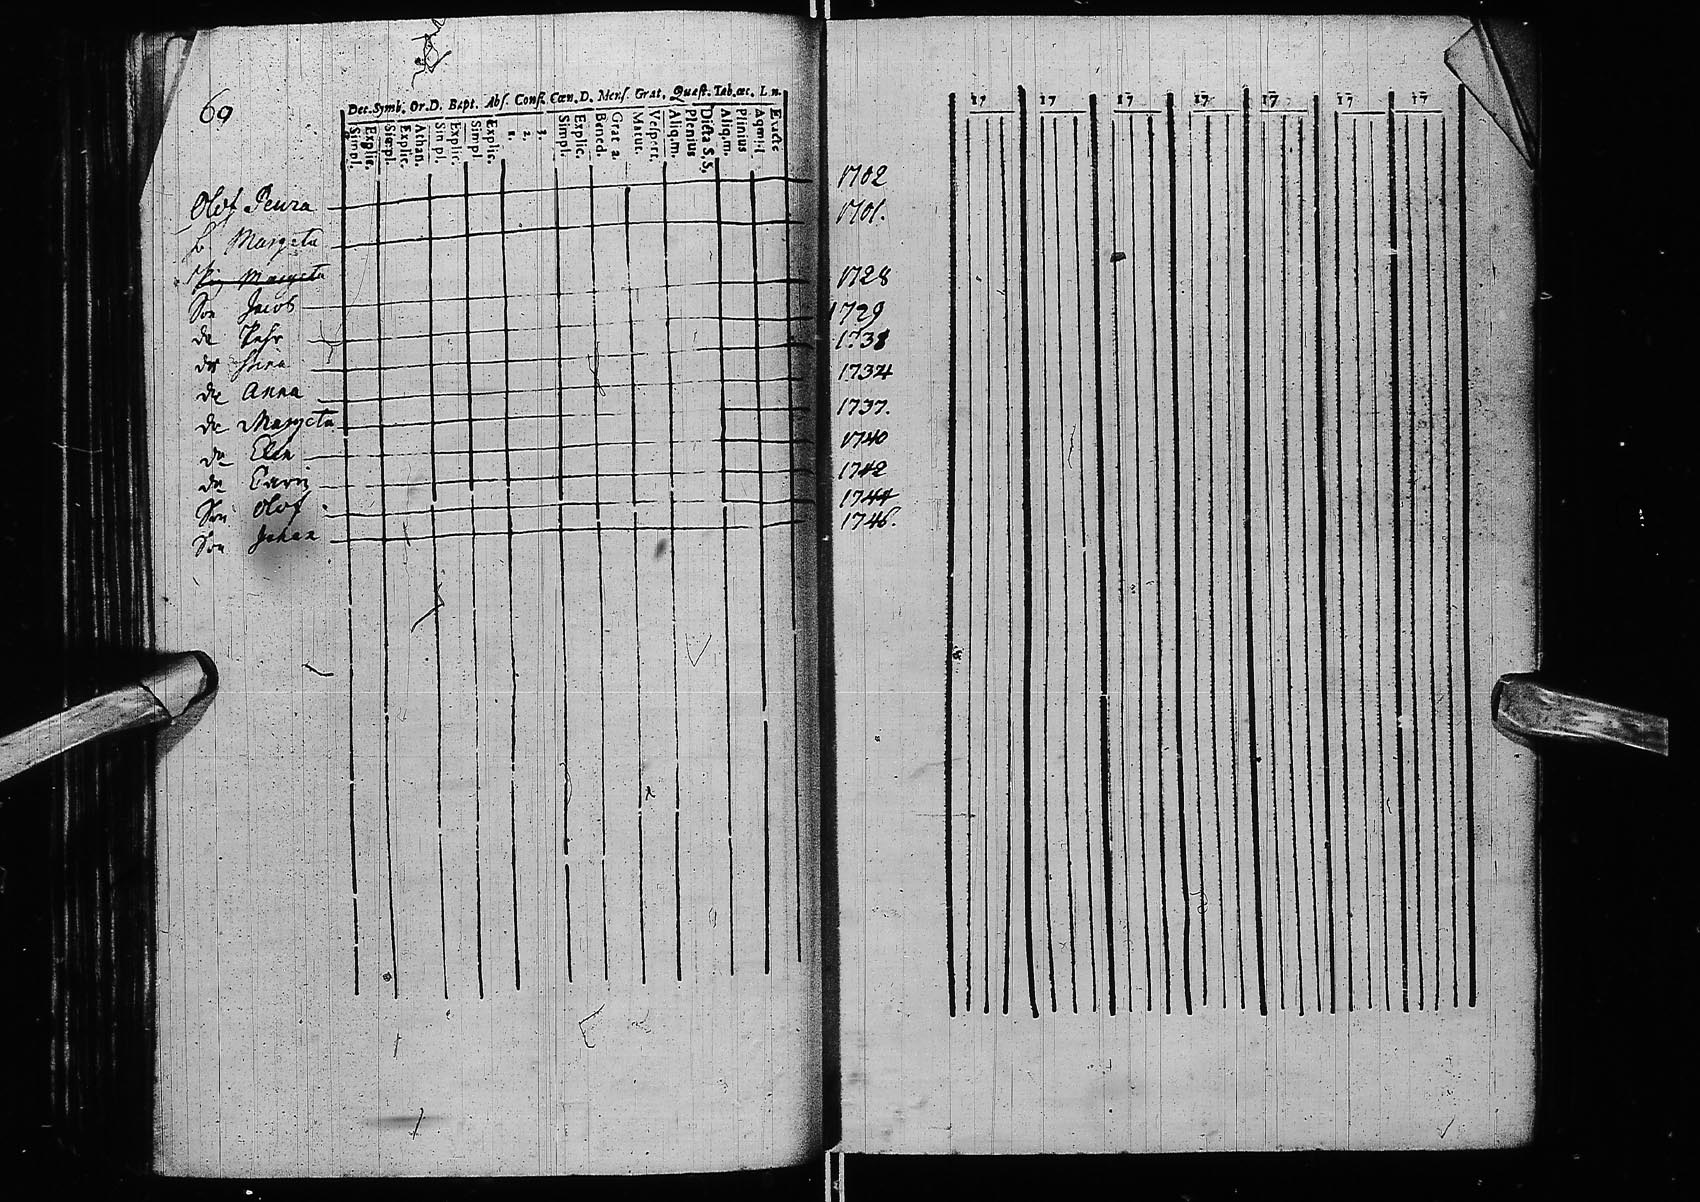 69
Dec. Symb. Or. D. Bapt. Abs. Conf. Cœn. D. Mens. Grat. Quæst. Tab. œc. L n.
Simpl.
Explic.
Simpl
Explic.
Athan.
Simpl.
Explic.
Simpl
Explic.
1.
2.
3.
Simpl.
Explic.
Bened.
Grat 2.
Matut.
Vespert.
Aliq. m.
Plenius
Dicta S. S.
Aliq. m.
Plenius
Exacte
Olof Peura 1702
h. Margeta 1701.
Margeta
Son Jacob 1728
do Pehr 1729
do 1731
do Anna 1734
do Margeta 1737.
do Elin 1740
do Carin 1742
Son Olof 1744
Son Johan 1746.
17 17 17 17 17 17 17